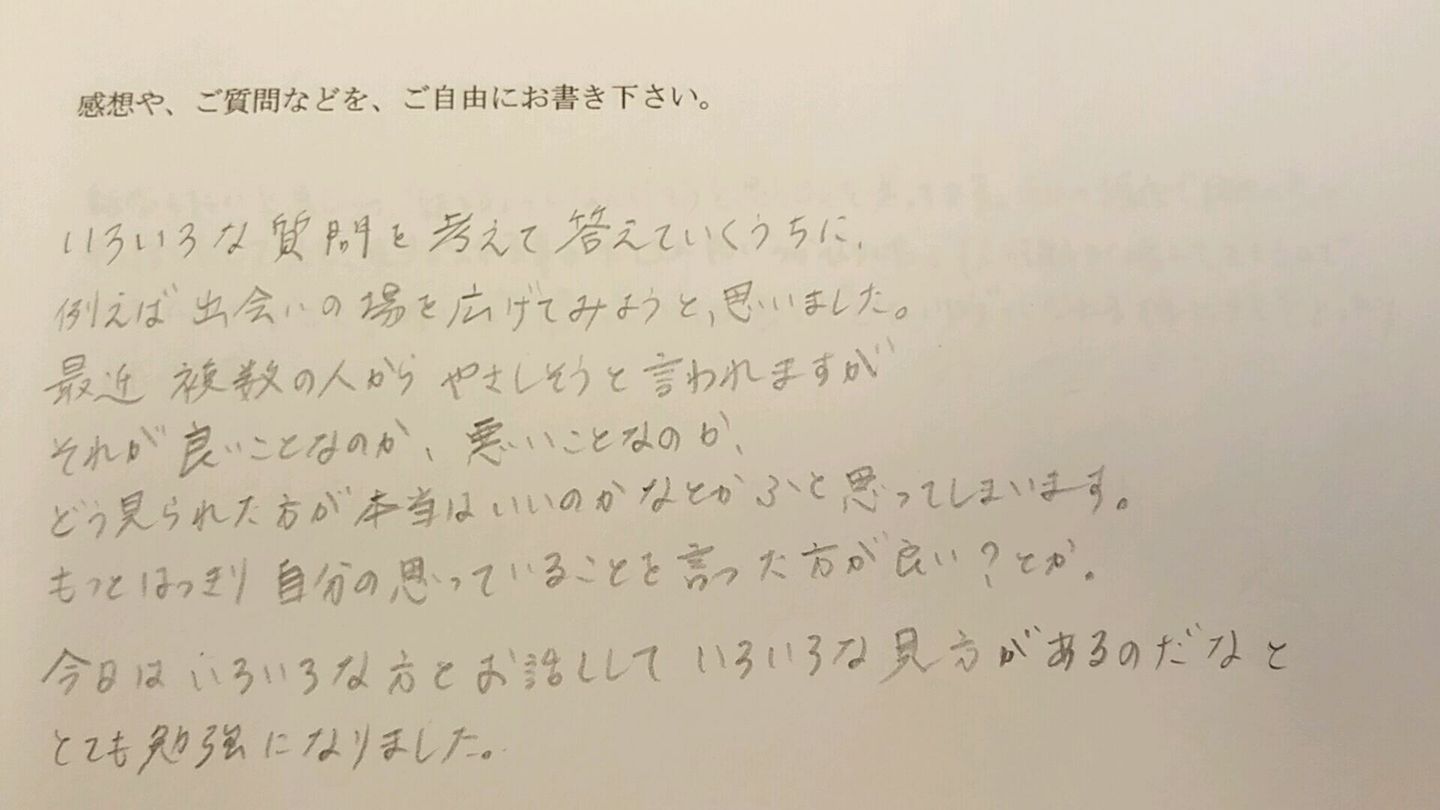 感想や、ご質問などを、ご自由にお書き下さい。
いろいろな質問を考えて答えていくうちに、
例えば出会いの場を広げてみようと、思いました。
最近 複数の人から やさしそうと言われますが
それが良いことなのか、悪いことなのか、
どう見られた方が本当はいいのかなとかふと思ってしまいます。
もっとはっきり自分の思っていることを言った方が良い？とか。
今日はいろいろな方とお話しして いろいろな見方があるのだなと
とても勉強になりました。